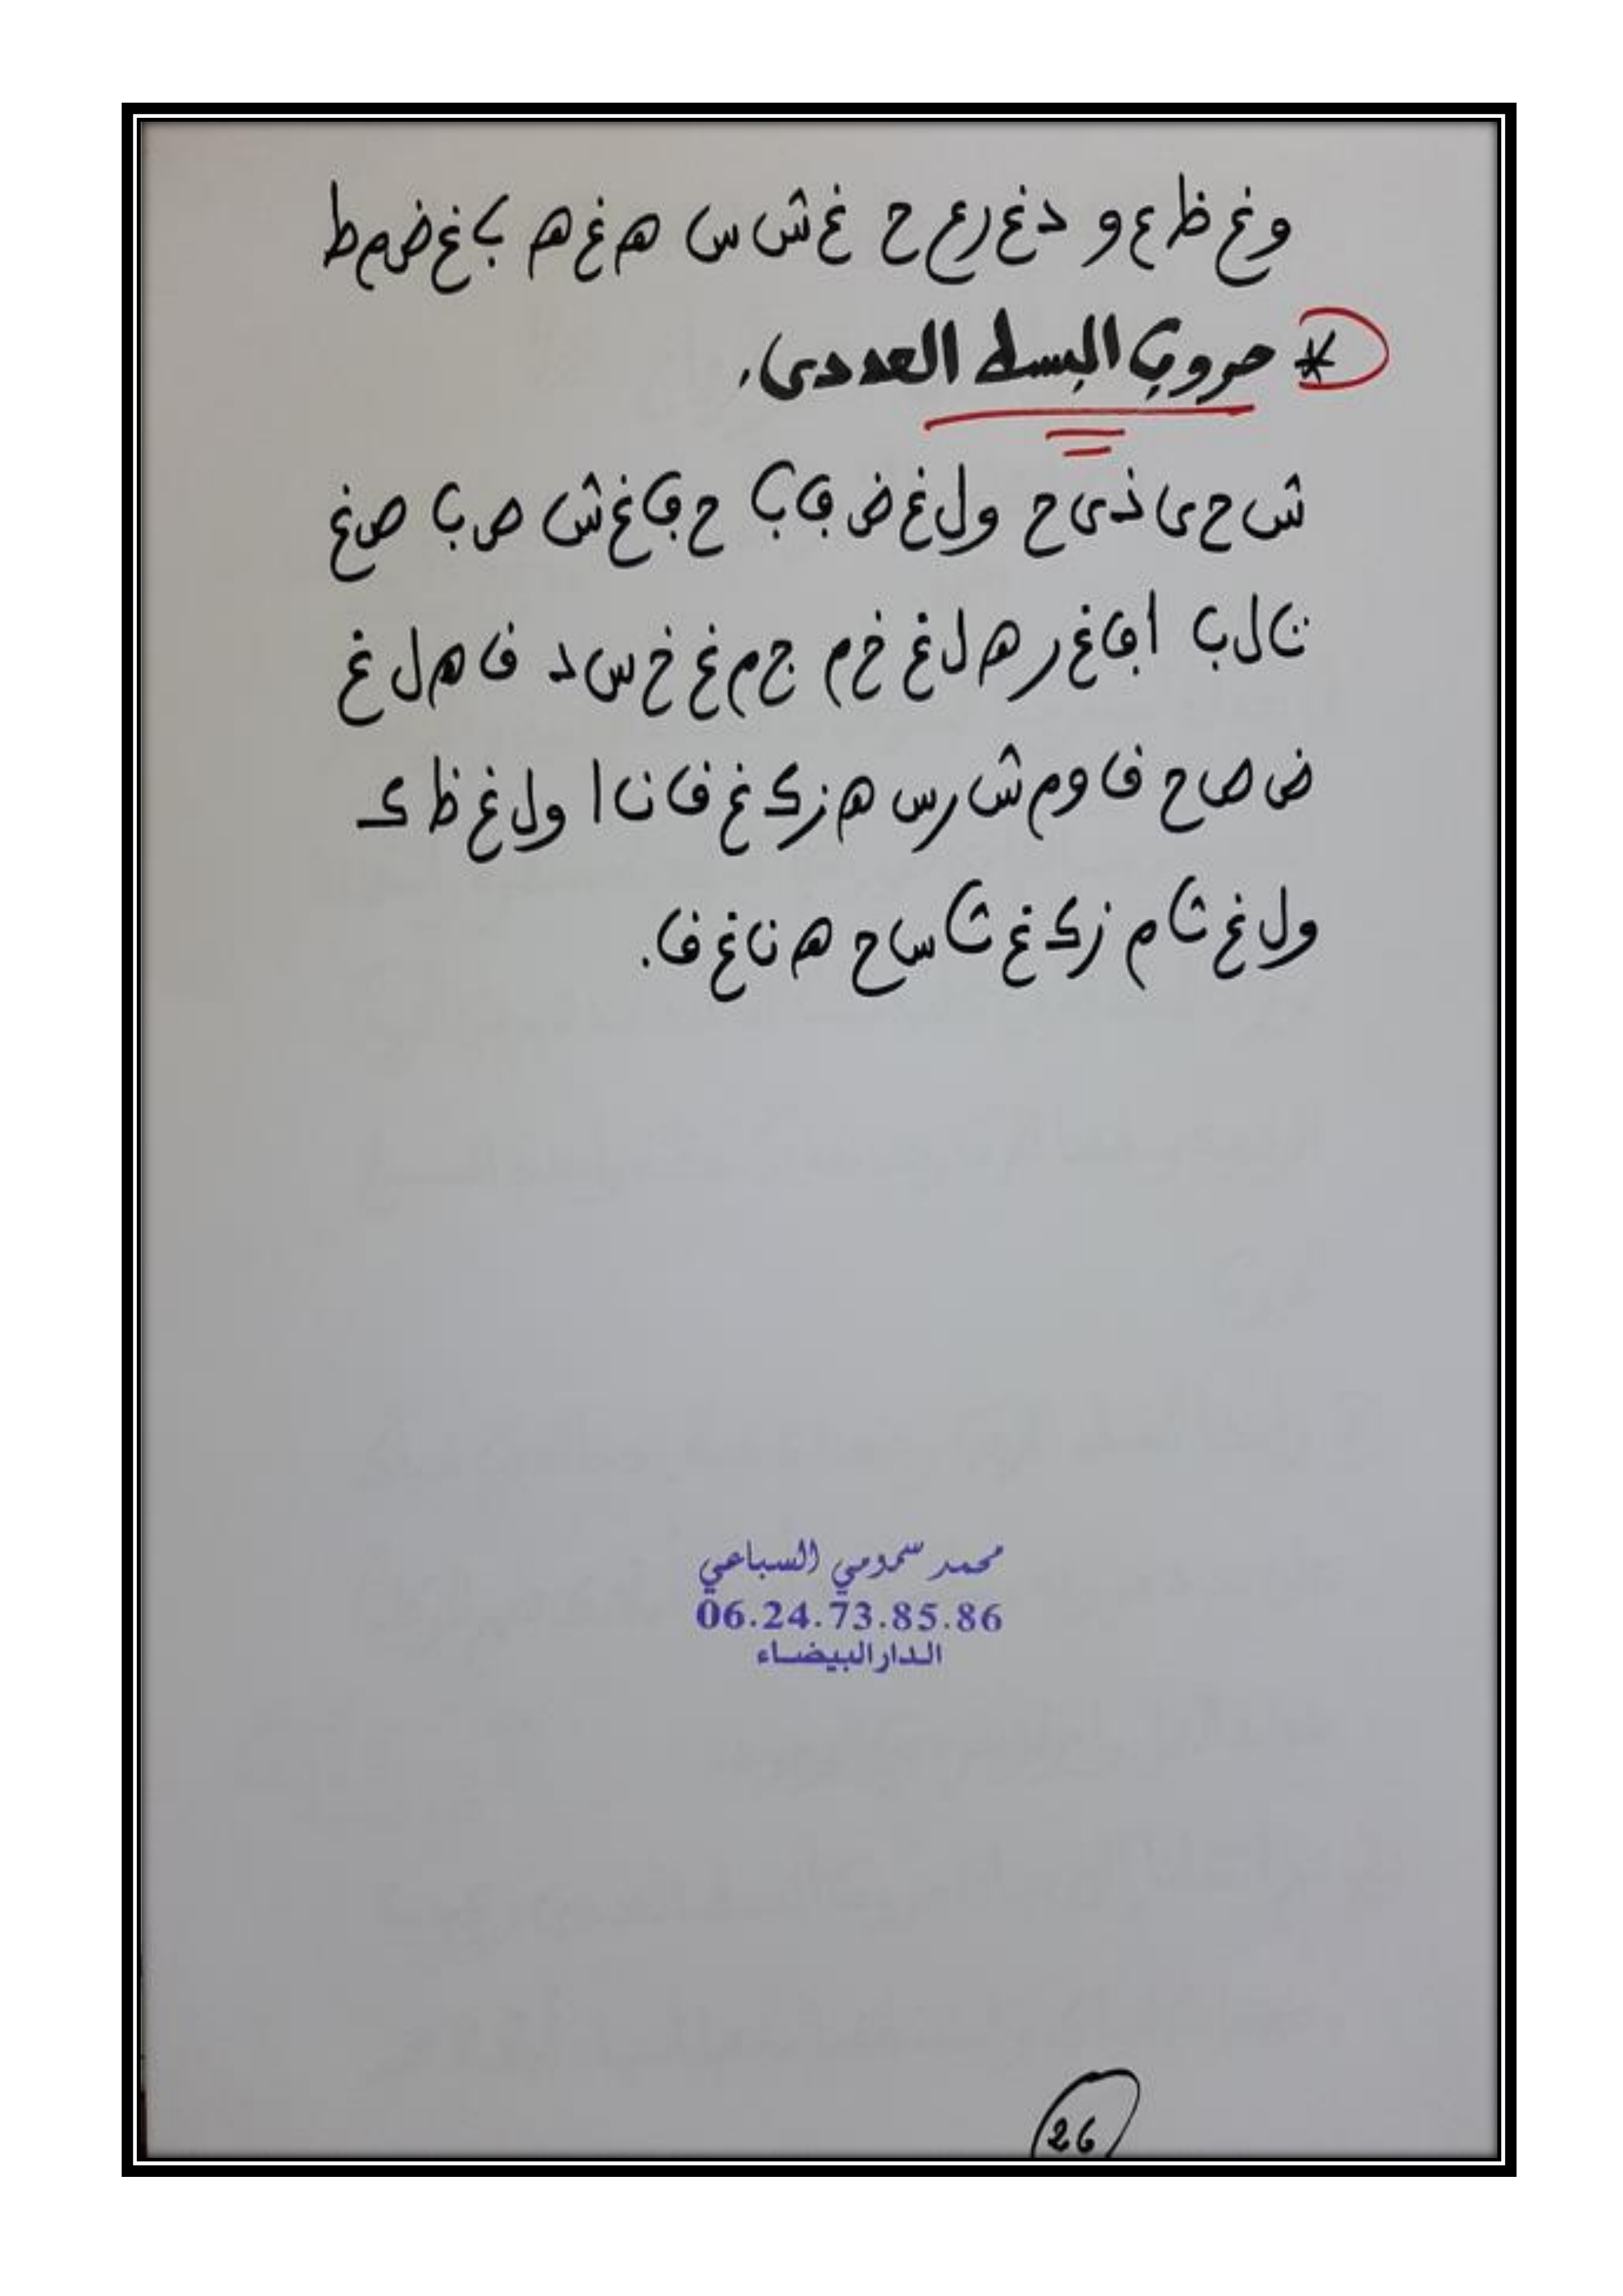 وغ ظ ع و دغ رع ح غ ش س هـ غ هـ ب غ ض م ط
* حروف البسط العددي.
ش ح ى ذ ى ح و ل غ ض ف ب ح ف غ ش ص ب ص غ
ت ل ب ا ف غ ر هـ ل غ خ م ج م غ خ س د ق هـ ل غ
ض ص ح ق و م ش ر س هـ ز ك غ ق ن ا و ل غ ظ ك
و ل غ ث م ز ك غ ث س ح هـ ن غ ق.
محمد سمومي السباعي
06.24.73.85.86
الدار البيضاء
26